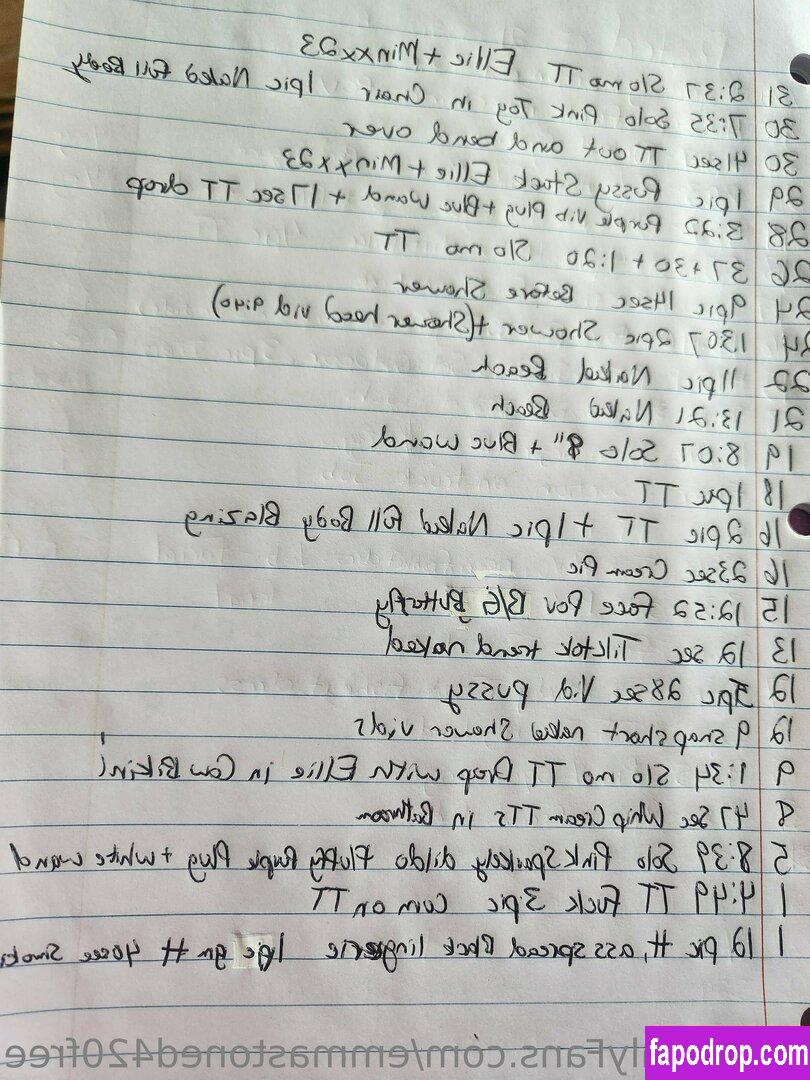 31 2:37 Slo mo TT Ellie + Minxx23
30 7:35 Solo Pink Toy in Chair 1pic Naked Full Body
30 41sec TT out and bend over
29 1pic Pussy Stack Ellie + Minxx23
28 3:22 Purple vib Plug + Blue wand + 17sec TT drop
26 37 + 30 + 1:20 Slo mo TT
24 9pic 14sec Before Shower
24 1307 2pic Shower + (Shower head vid 9:40)
22 11pic Naked Beach
21 13:21 Naked Beach
19 8:07 Solo 8" + Blue wand
18 1pic TT
16 2pic TT + 1pic Naked Full Body Blazing
16 23sec Cream Pie
15 12:52 Face Pov B/G Butterfly
13 12 sec Tiktok trend naked
12 3pic 28sec Vid pussy
12 9 snapshart naked shower vids
9 1:34 Slo mo TT Drop with Ellie in Cow Bikini
8 47 Sec Whip Cream TTs in Bathroom
5 8:39 Solo Pink Sparkely dildo Fluffy Purple Plug + white wand
1 4:49 TT Fuck 3pic Cum on TT
1 12 pic #, ass spread Black lingerie 1pic gn # 40sec Smoki
lyFans.com/emmastoned420free
fapodrop.com